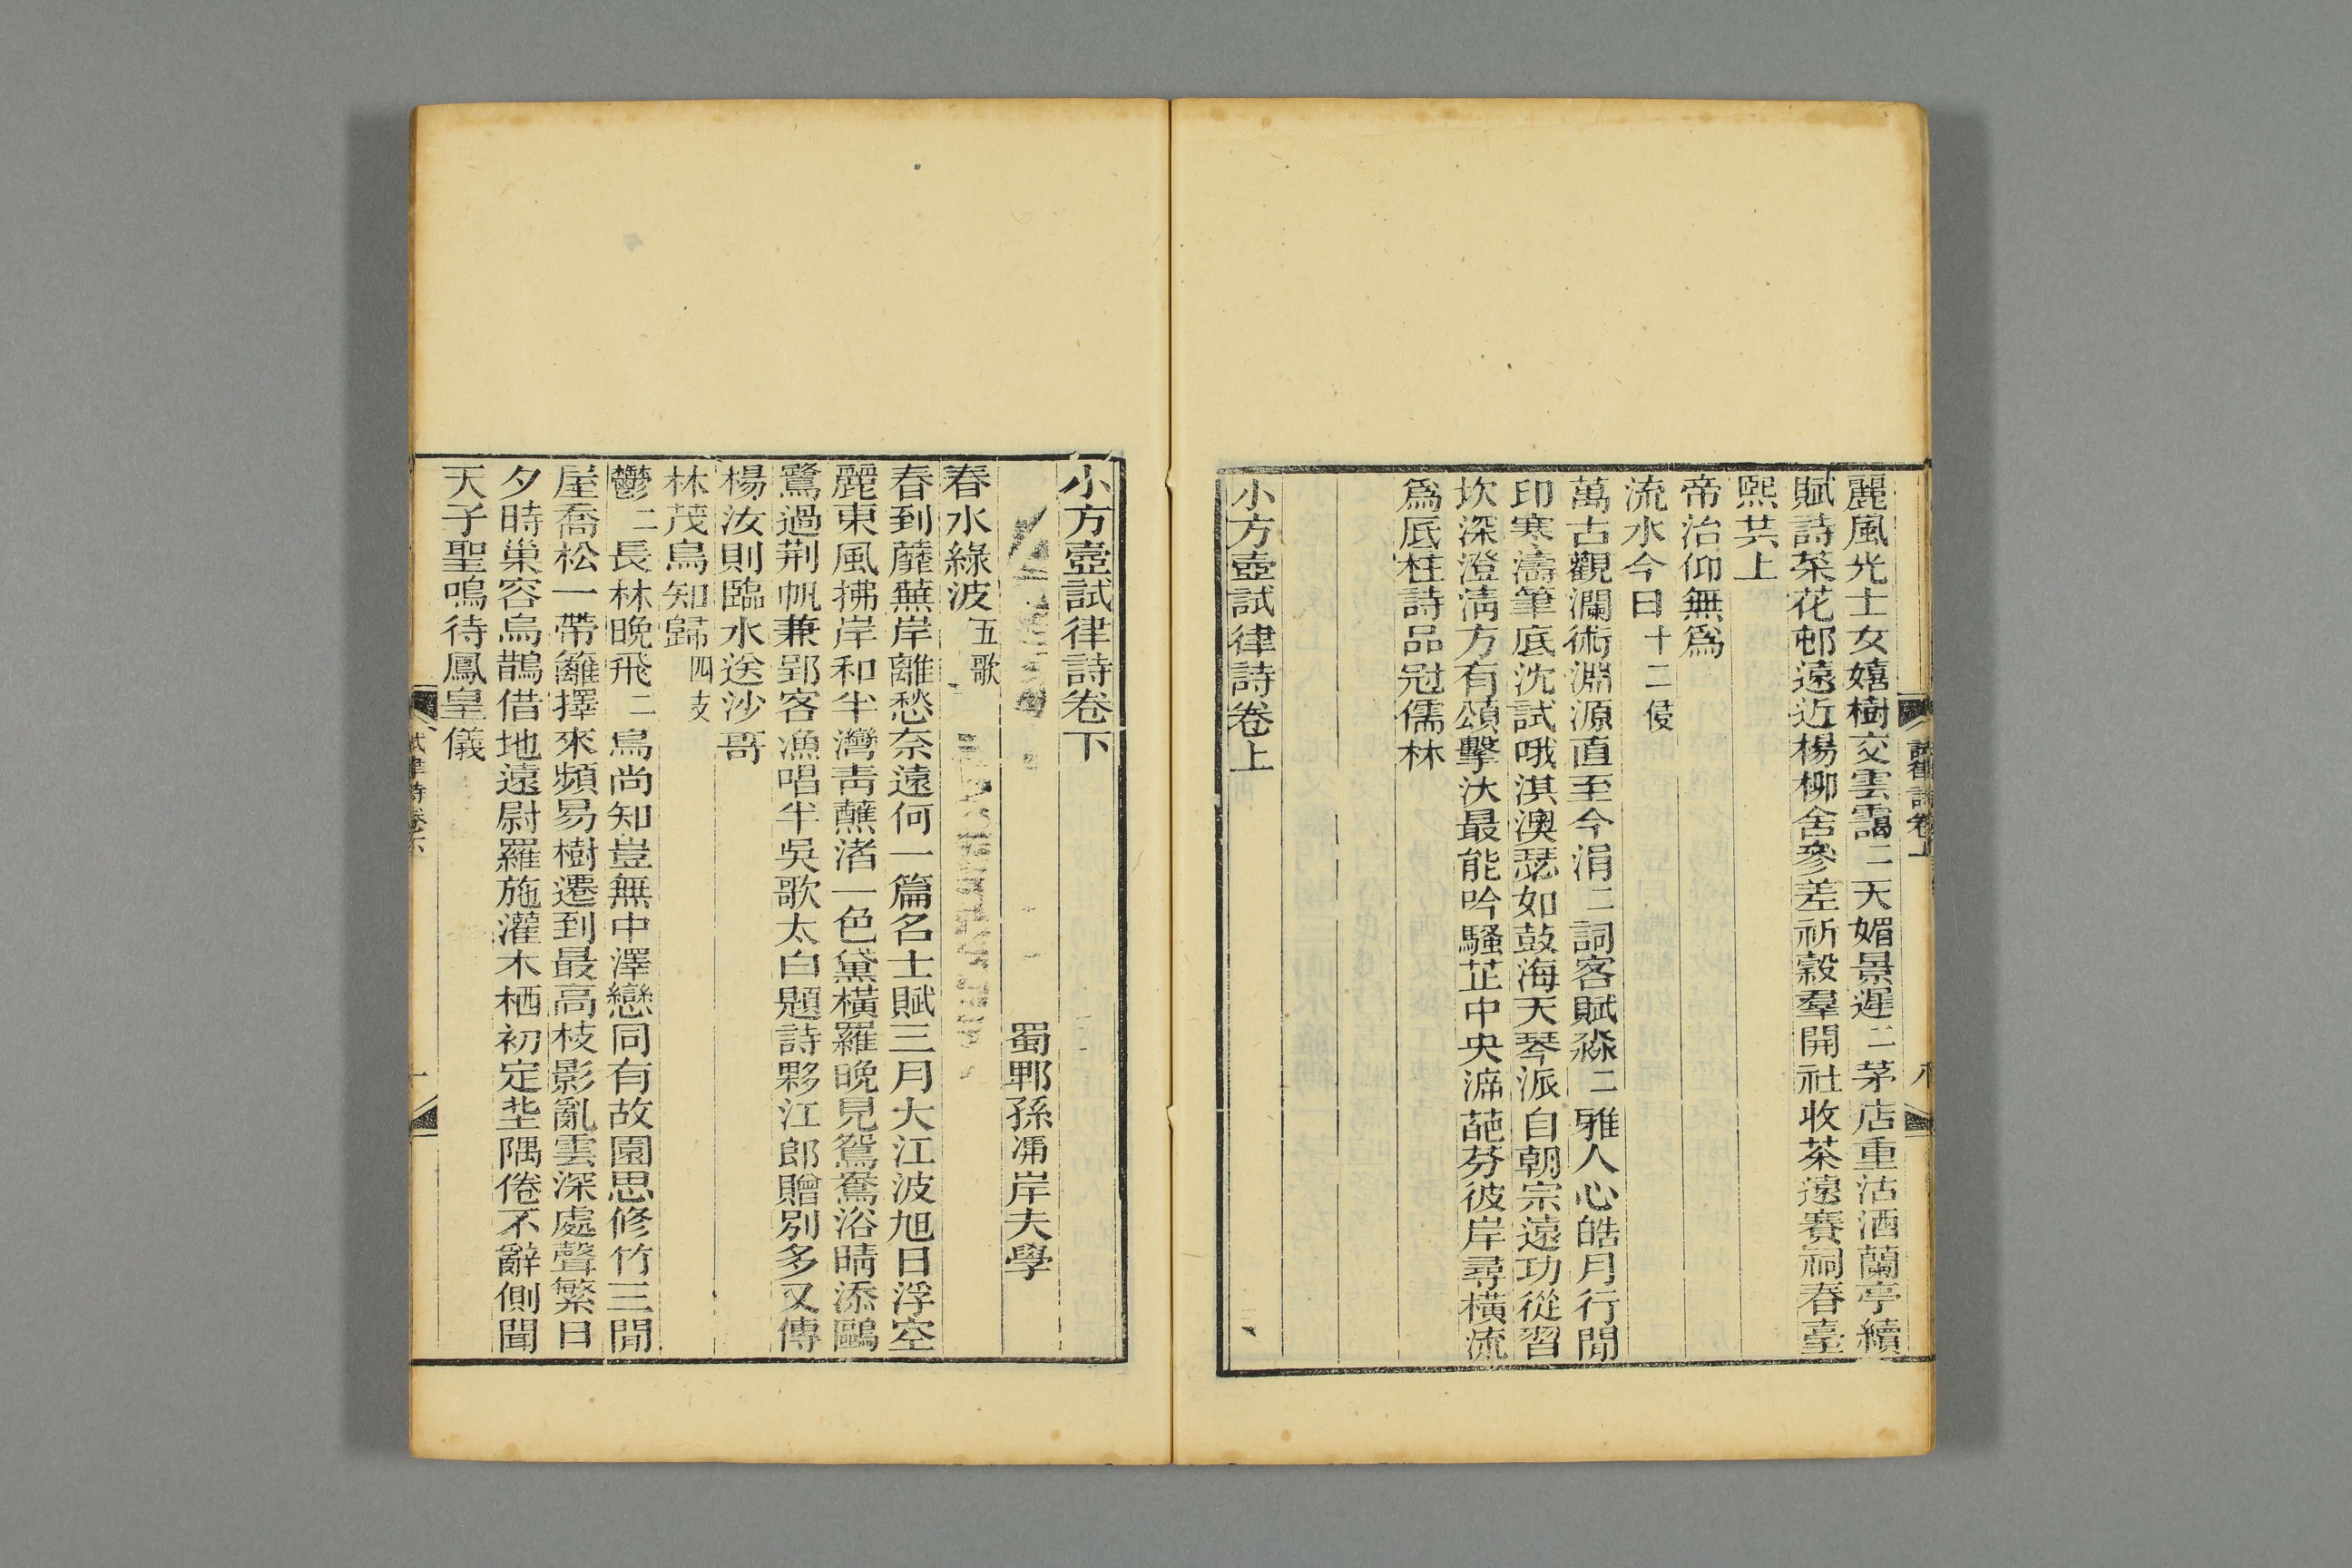 麗風光士女嬉樹交雲靄二天媚景遲二茅店重沽酒蘭亭續
賦詩菜花邨遠近楊柳舍參差祈穀羣開社收茶遠賽祠春臺
熙共上
帝治仰無爲
流水今日十二侵
萬古觀瀾術淵源直至今涓二詞客賦淼二雅人心皓月行間
印寒濤筆底沈試哦淇澳瑟如鼓海天琴派自朝宗遠功從習
坎深澄淸方有頌擊汰最能吟騷芷中央滿葩芬彼岸尋橫流
爲底柱詩品冠儒林
小方壺試律詩卷上
小方壺試律詩卷下
蜀郫孫澍岸夫學
春水綠波五歌
春到蘼蕪岸離愁奈遠何一篇名士賦三月大江波旭日浮空
麗東風拂岸和半灣靑蘸渚一色黛橫羅晚見鴛鴦浴晴添鷗
鷺過荆帆兼郢客漁唱半吳歌太白題詩夥江郎贈別多又傳
楊汝則臨水送沙哥
林茂鳥知歸四支
鬱二長林晚飛二鳥尚知豈無中澤戀同有故園思修竹三間
屋喬松一帶籬擇來頻易樹遷到最高枝影亂雲深處聲繁日
夕時巢容烏鵲借地遠尉羅施灌木栖初定坐隅倦不辭側聞
天子聖鳴待鳳皇儀
試律詩卷下
一